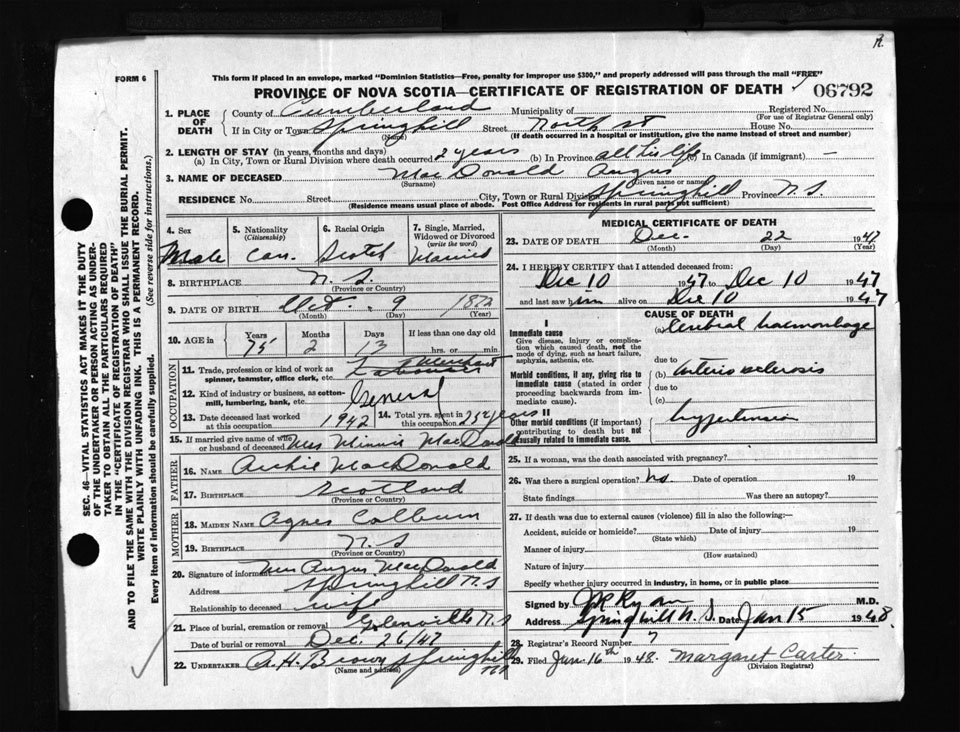 R.
FORM 6
This form if placed in an envelope, marked "Dominion Statistics—Free, penalty for improper use $300," and properly addressed will pass through the mail "FREE"
PROVINCE OF NOVA SCOTIA—CERTIFICATE OF REGISTRATION OF DEATH 06792
SEC. 46—VITAL STATISTICS ACT MAKES IT THE DUTY
OF THE UNDERTAKER OR PERSON ACTING AS UNDER-
TAKER TO OBTAIN ALL THE PARTICULARS REQUIRED
IN THE "CERTIFICATE OF REGISTRATION OF DEATH"
AND TO FILE THE SAME WITH THE DIVISION REGISTRAR WHO SHALL ISSUE THE BURIAL PERMIT.
WRITE PLAINLY WITH UNFADING INK. THIS IS A PERMANENT RECORD.
Every item of information should be carefully supplied. (See reverse side for instructions.)
1. PLACE OF DEATH County of Cumberland Municipality of Registered No.
(For use of Registrar General only)
If in City or Town Springhill Street North st House No.
(Name) (If death occurred in a hospital or institution, give the name instead of street and number)
2. LENGTH OF STAY (in years, months and days)
(a) In City, Town or Rural Division where death occurred 2 years (b) In Province all his life (c) In Canada (if immigrant) —
3. NAME OF DECEASED MacDonald Angus
(Surname) (Given name or names)
RESIDENCE No. Street City, Town or Rural Division Springhill Province N.S.
(Residence means usual place of abode. Post Office Address for residents in rural parts not sufficient)
4. Sex 5. Nationality (Citizenship) 6. Racial Origin 7. Single, Married, Widowed or Divorced (write the word)
Male Can. Scotch Married
8. BIRTHPLACE N.S.
(Province or Country)
9. DATE OF BIRTH Oct. 9 1872
(Month) (Day) (Year)
10. AGE in Years Months Days If less than one day old
75 2 13 hrs. or min.
OCCUPATION
11. Trade, profession or kind of work as spinner, teamster, office clerk, etc. Merchant
12. Kind of industry or business, as cotton-mill, lumbering, bank, etc. General
13. Date deceased last worked at this occupation 1942 14. Total yrs. spent in this occupation 25 years
15. If married give name of wife or husband of deceased Mrs Minnie MacDonald
FATHER
16. NAME Archie MacDonald
17. BIRTHPLACE Scotland
(Province or Country)
MOTHER
18. MAIDEN NAME Agnes
19. BIRTHPLACE N.S
(Province or Country)
20. Signature of informant Mrs Angus MacDonald
Address Springhill N.S
Relationship to deceased wife
21. Place of burial, cremation or removal Glenville N.S
Date of burial or removal Dec. 26/47
22. UNDERTAKER A.H. Brown Springhill
NS
(Name and address)
MEDICAL CERTIFICATE OF DEATH
23. DATE OF DEATH Dec. 22 1947
(Month) (Day) (Year)
24. I HEREBY CERTIFY that I attended deceased from:
Dec 10 1947 to Dec 10 1947
and last saw him alive on Dec 10 1947
CAUSE OF DEATH
I
Immediate cause (a) Cerebral haemorrhage
Give disease, injury or complication which caused death, not the mode of dying, such as heart failure, asphyxia, asthenia, etc.
due to
Morbid conditions, if any, giving rise to immediate cause (stated in order proceeding backwards from immediate cause). (b) Arteriosclerosis
due to
(c)
II
Other morbid conditions (if important) contributing to death but not causally related to immediate cause. hypertension
25. If a woman, was the death associated with pregnancy?
26. Was there a surgical operation? No. Date of operation 19
State findings Was there an autopsy?
27. If death was due to external causes (violence) fill in also the following:—
Accident, suicide or homicide? Date of injury 19
(State which)
Manner of injury
(How sustained)
Nature of injury
Specify whether injury occurred in industry, in home, or in public place
Signed by Ryan M.D.
Address Springhill N.S. Date Jan 15 1948.
28. Registrar's Record Number 7
29. Filed Jan. 16th 1948. Margaret Carter.
(Division Registrar)